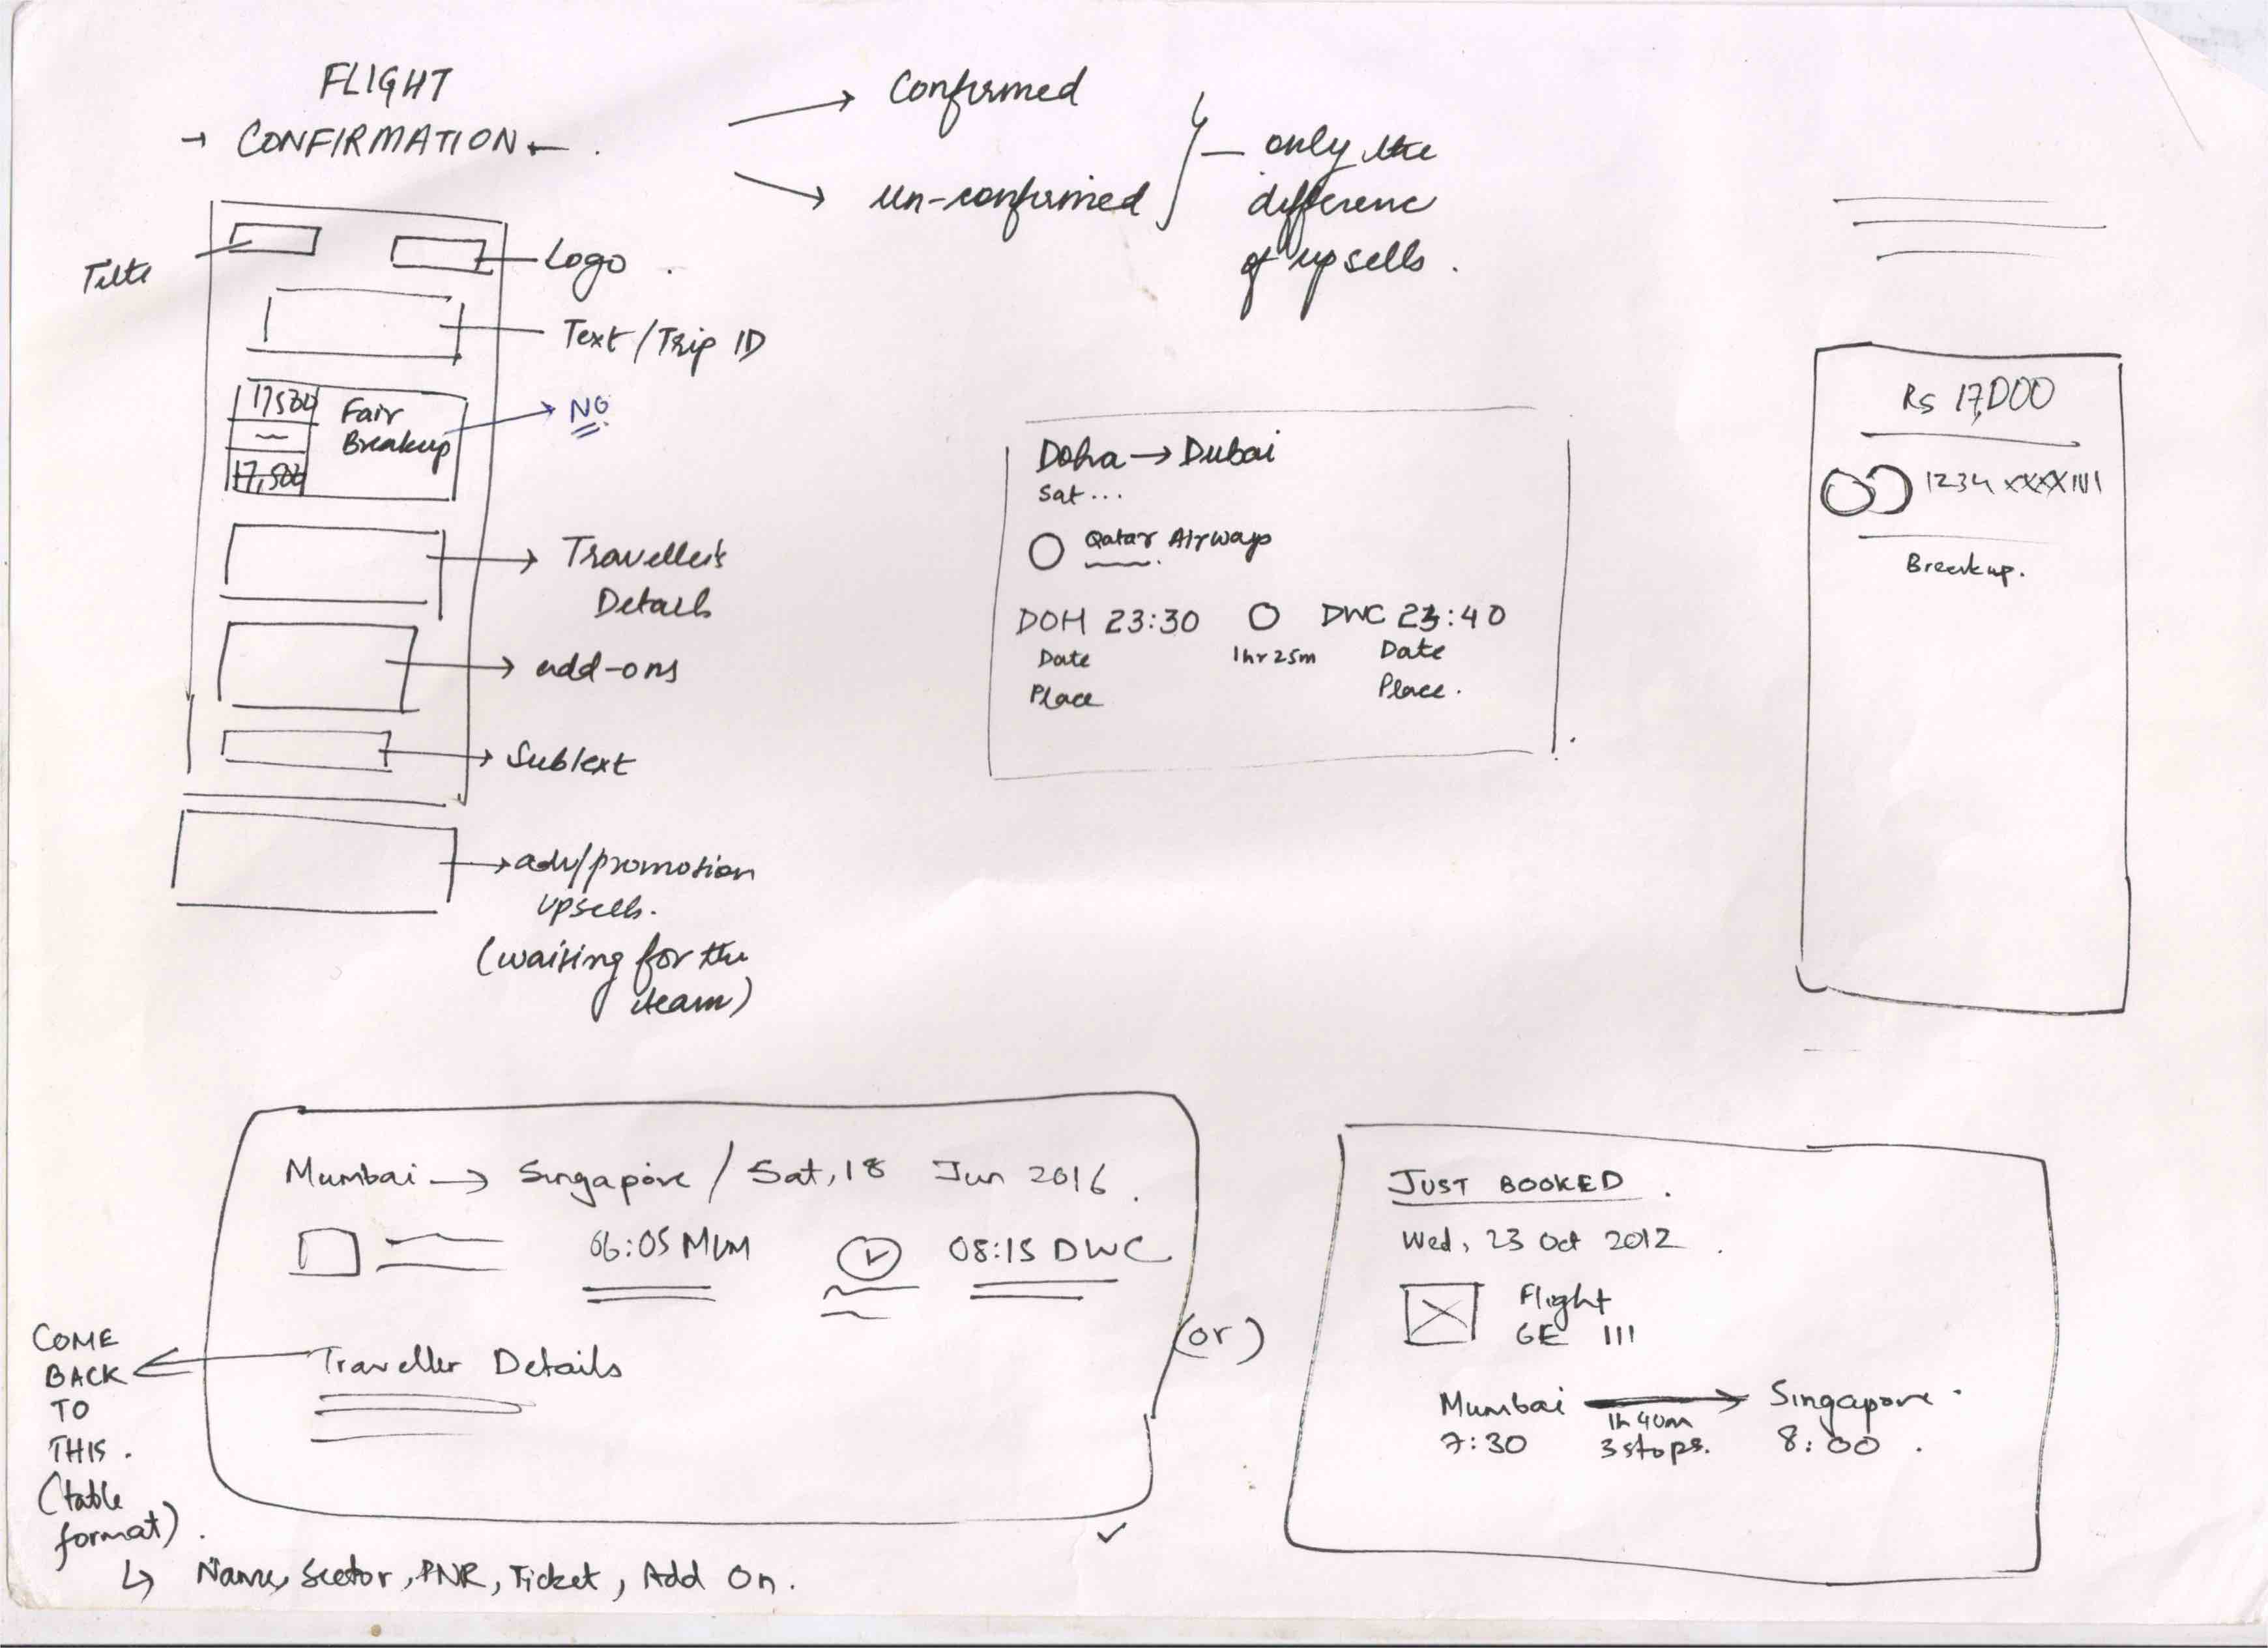 FLIGHT
→ CONFIRMATION ← .
→ Confirmed
→ un-confirmed
— only the
difference
of upsells .
Title
Logo .
Text / Trip ID
17500
Fair
Breakup
17,500
→ NO
→ Traveller's
Details
→ add-ons
→ Subtext
→ adv/promotion
upsells.
(waiting for the
team)
Doha → Dubai
Sat ...
Qatar Airways
DOH 23:30
DWC 23:40
Date
1hr 25m
Date
Place
Place .
Rs 17,000
1234 XXXX 1111
Breakup.
Mumbai → Singapore / Sat, 18 Jun 2016 .
06:05 MUM
08:15 DWC
Traveller Details
COME
BACK
TO
THIS .
(table
format) .
↳ Name, Sector, PNR, Ticket, Add On .
(or)
JUST BOOKED .
Wed, 23 Oct 2012 .
Flight
6E 111
Mumbai → Singapore .
1h 40m
7:30
3 stops.
8:00 .